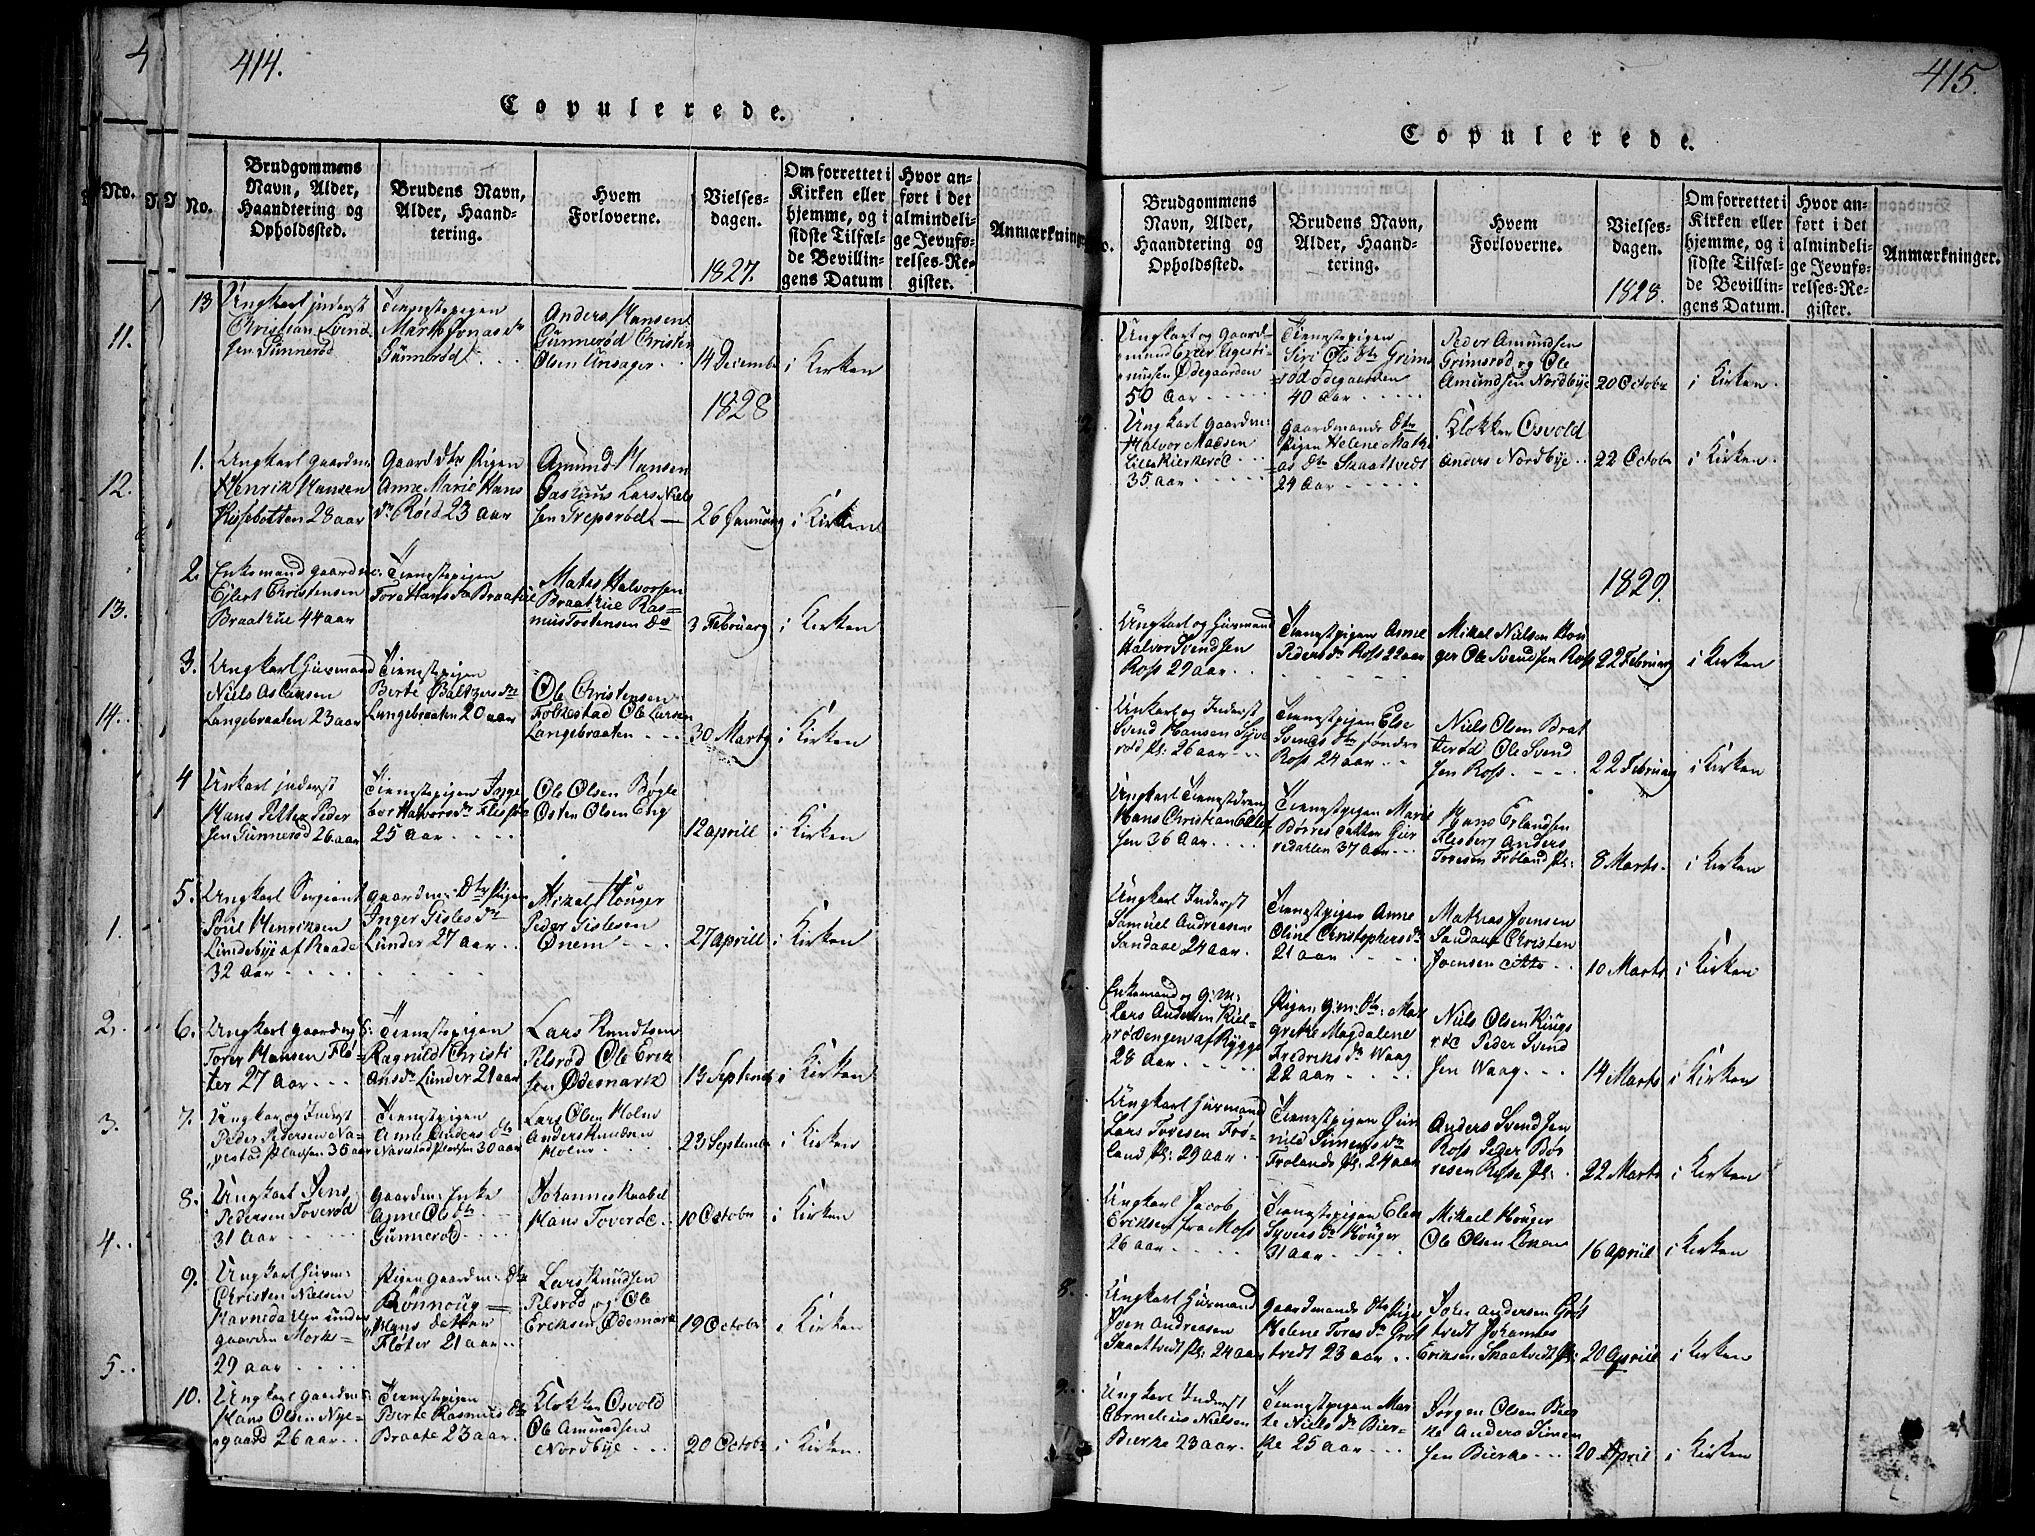 414.
Copulerede.
No.
Brudgommens
Navn, Alder,
Haandtering og
Opholdssted.
Brudens Navn,
Alder, Haand-
tering.
Hvem
Forloverne.
Vielses-
dagen.
1827.
Om forrettet i
Kirken eller
hjemme, og i
sidste Tilfæl-
de Bevillin-
gens Datum
Hvor an-
ført i det
almindeli-
ge Jevnfø-
relses-Re-
gister.
Anmærkninger
13 Ungkarl inderst
Christian Svend
sen Gunnerød
Tienestepigen
Marte Jonas dr
Gunnerød
Anders Hansen
Gunnerød Christen
Olsen
14 December
i Kirken
1828
1. Ungkarl gaardm:
Henrik Hansen
28 aar
Gaard dtr Pigen
Anne Marie Hans
dr Röed 23 aar
Amund Hansen
Lars Niel
sen
26 Januarg
i Kirken
2. Enkemand gaardm:
Ejlert Christensen
Braatrue 44 aar
Tienestepigen
Tora Hans dr Braatrue
Mates Halvorsen
Braatrue Ras=
mus Tostensen do
3 Februarg
i Kirken
3. Ungkarl Husmand
Niels Aslaksen
Langebraaten 23 aar
Tienestepigen
Berte Baltzers dr
Langebraaten 20 aar
Ole Christensen
Folkestad Ole Larsen
Langebraaten
30 Marty
i Kirken
4 Unkarl inderst
Hans Petter Peder
sen Gunnerød 26 aar
Tienestepigen Inge
bor Halvors dr
25 aar
Ole Olsen Bøgle
Osten Olsen Eng
12 aprill
i Kirken
5. Ungkarl Sergiant
Poul Henriksen
Lundebye af Raade
32 aar
gaardm: Dtr Pigen
Inger Gisles dr
Lunder 27 aar
Mikel Houger
Peder Gislesen
Önem
27 aprill
i Kirken
6. Ungkarl gaardm:
Torer Hansen Flø=
ter 27 aar
Tienestepigen
Ragnild Christi
ans dr Lunder 21 aar
Lars Knudtsen
Pelsrød Ole Erik
sen Ödemark
13 Septemb
i Kirken
7. Ungkar og Inderst
Peder Pedersen Na=
vestad pladsen 36 aar
Tienestepigen
Anne Anders dtr
Navestad pladsen 30 aar
Lars Olsen Holm
Anders Knudsen
Holm
23 Septembr
i Kirken
8. Ungkarl Jens
Pedersen Toverød
31 aar
gaardm: Enke
Anne Ole dtr
Gunnerød
Johannes Raabel
Hans Toverøe
10 Octobr
i Kirken
9. Ungkarl Husm:
Christen Nielsen
Kavnedahlen under
gaarden Mork=
29 aar
Pigen gaardm: Dtr
Rönnoug =
Hans datter
Fløter 21 aar
Lars Knudsen
Pelsrød og Ole
Eriksen Ödemark
19 Octobr
i Kirken
10. Ungkarl gaardm:
Hans Olsen Nye=
gaard 26 aar
Tienestepigen
Berte Rasmus dtr
Braate 23 aar
Klokker Osvold
Ole Amundsen
Nordbye
20 Octobr
i Kirken
415.
Copulerede.
Brudgommens
Navn, Alder,
Haandtering og
Opholdssted.
Brudens Navn,
Alder, Haand-
tering.
Hvem
Forloverne.
Vielses-
dagen.
1828.
Om forrettet i
Kirken eller
hjemme, og i
sidste Tilfæl-
de Bevillin-
gens Datum.
Hvor an-
ført i det
almindeli-
ge Jevnfø-
relses-Re-
gister.
Anmærkninger.
Ungkarl og gaard
mand Peter Agesti
nussen Ødegaarden
50 Aar
Tienestepigen
Siri Ols dtr Grims
=rød Ødegaarden
40 aar
Peder Amundsen
Grimsrød og Ole
Amundsen Nordbye
20 Octobr
i Kirken.
Ungkarl gaardm:
Halvor Madsen
Lille Kierkerøe
35 aar
gaardmands Dtr
Pigen Helene Math=
as dtr Skaattvedt
24 aar
Klokker Osvold
Anders Nordbye
22 Octobr
i Kirken.
1829.
Ungkarl og Husmand
Halvor Svendsen
Ross 29 aar
Tienestepigen Anne
Peders dr Ross 22 aar
Mikel Nielsen Hou
ger Ole Svendsen Ross
22 Februarg
i Kirken
Unkarl og Inderst
Svend Hansen Syve
rød pl: 26 aar
Tienestepigen Else
Svends dtr søndre
Ross 24 aar
Niels Olsen Brat
terød Ole Svend
sen Ross
22 Februarg
i Kirken
Ungkarl Tienestdreng
Hans Christian Ellef
sen 36 Aar
Tienestepigen Marie
Børres datter Gur
redalen 37 Aar
Hans Erlandsen
Flesberg Anders
Toresen Frøland pl:
8 Marts
i Kirken
Ungkarl Inderst
Samuel Andreasen
Sandaae 24 aar
Tienestepigen Anne
Oline Christophers dr
21 aar
Mathias Joensen
Sandaae Christen
Joensen ditto
10 Marts
i Kirken
5.
Enkemand og g:m:
Lars Andersen Kiel=
rødengen af Rygge
28 aar
Pigen g:m: dtr: Mar
grethe Magdalene
Fredriks dr Waag
22 aar
Niels Olsen Kings
røe Peder Svend
sen Waag
14 Marts
i Kirken
Ungkarl Husmand
Lars Toresen Frø=
land pl: 29 aar
Tienestepigen Gun
nild Simens dr
Frølands pl: 24 aar
Anders Svendsen
Ross Peder Bör
resen Rosse pl:
22 Marts
i Kirken
7.
Ungkarl Jacob
Eriksen fra Moss
26 aar
Tienestepigen Elen
Syvers dr Houger
31 aar
Mikael Houger
Ole Olsen Løken
16 Apriil
i Kirken
8.
Ungkarl Husmand
Joen Andreasen
Skaattvedt pl: 24 aar
gaardmands dtr Pige
Helene Tores dr Grøt
tvedt 23 aar
Torer Andersen Grøt
tvedt Johannes
Eriksen Skaatvedt pl:
20 Apriil
i Kirken
9.
Ungkarl Inderst
Cornelius Nielsen
Bierke 23 aar
Tienestepigen Mar
te Niels dr Bier=
ke 25 aar
Jørgen Olsen Bier
ke Anders Simen
sen Bierke
20 April
i Kirken